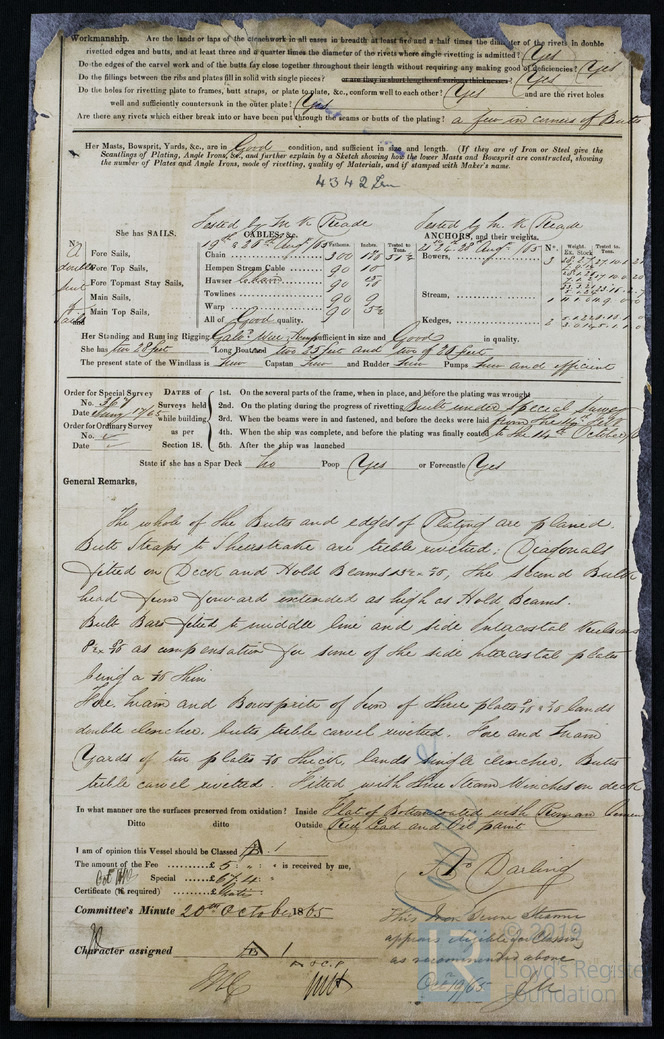 Workmanship. Are the lands or laps of the clenchwork in all cases in breadth at least five and a half times the diameter of the rivets in double
rivetted edges and butts, and at least three and a quarter times the diameter of the rivets where single rivetting is admitted? Yes
Do the edges of the carvel work and of the butts fay close together throughout their length without requiring any making good of deficiencies? Yes
Do the fillings between the ribs and plates fill in solid with single pieces? or are they in short lengths of various thicknesses? Yes
Do the holes for rivetting plate to frames, butt straps, or plate to plate, &c., conform well to each other? Yes and are the rivet holes
well and sufficiently countersunk in the outer plate? Yes
Are there any rivets which either break into or have been put through the seams or butts of the plating? a few in corners of Butts
Her Masts, Bowsprit, Yards, &c., are in Good condition, and sufficient in size and length. (If they are of Iron or Steel give the
Scantlings of Plating, Angle Irons, &c., and further explain by a Sketch showing how the lower Masts and Bowsprit are constructed, showing
the number of Plates and Angle Irons, mode of rivetting, quality of Materials, and if stamped with Maker's name.
4342 Iron
She has SAILS.
N.
Fore Sails,
Fore Top Sails,
Fore Topmast Stay Sails,
Main Sails,
Main Top Sails,
and
Tested by M. K. Reade
CABLES, &c.
19th & 26th Augt/65 Fathoms. Inches. Tested to Tons.
Chain 300
Hempen Stream Cable 90 10
Hawser Chain 90
Towlines 90 9
Warp 90
All of Good quality.
Tested by M. K. Reade
ANCHORS, and their weights.
28 Augt/65 No. Weight. Ex. Stock Tested to Tons.
Bowers, 3
Stream, 1
Kedges, 2
Her Standing and Running Rigging Galvd. Wire & Hemp sufficient in size and Good in quality.
She has two 28 feet Long Boat and two 25 feet and two of 24 feet
The present state of the Windlass is New Capstan New and Rudder New Pumps New and efficient
Order for Special Survey
No. 367
Date Jany 1865
Order for Ordinary Survey
No. ✓
Date ✓
DATES of Surveys held while building as per Section 18.
1st. On the several parts of the frame, when in place, and before the plating was wrought
2nd. On the plating during the progress of rivetting Built under Special survey
3rd. When the beams were in and fastened, and before the decks were laid from
4th. When the ship was complete, and before the plating was finally coated to the 14th October
5th. After the ship was launched
State if she has a Spar Deck No Poop Yes or Forecastle Yes
General Remarks,
The whole of the Butts and edges of Plating are planed.
Butt Straps to Sheerstrake are treble rivetted; Diagonals
fitted on Deck and Hold Beams, the second Bulk
head from forward extended as high as Hold Beams.
Bulb Bars fitted to middle line and side Intercostal Keelsons
as compensation for some of the side intercostal plates
being thin
Fore, Main and Bowsprits of Iron of three plates lands
double clencher, butts treble carvel rivetted. Fore and Main
Yards of two plates thick, lands single clencher, Butts
treble carvel rivetted. Fitted with three Steam Winches on deck
In what manner are the surfaces preserved from oxidation? Inside Flat of Bottom coated with Roman Cement
Ditto ditto Outside Red Lead and Oil paint
I am of opinion this Vessel should be Classed A 1
The amount of the Fee £5 : : is received by me,
Special £
Certificate (if required) £ Gratis
A. Darling
Committee's Minute 20th October 1865
Character assigned A 1
This Iron Screw Steamer
appears eligible for Classing
as recommended above
Oct 19/65
© 2019
Lloyd's Register
Foundation